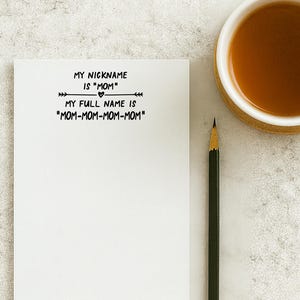 MY NICKNAME
IS "MOM"
MY FULL NAME IS
"MOM-MOM-MOM-MOM"